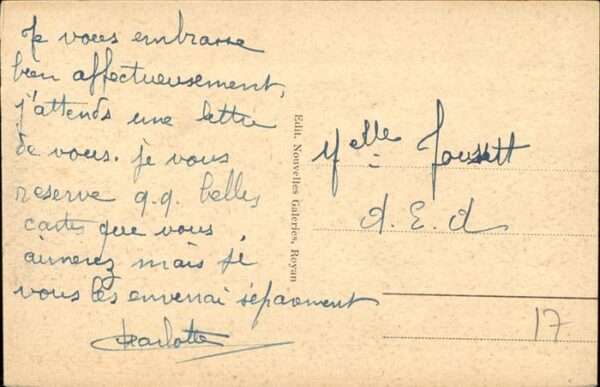 Je vous embrasse
bien affectueusement,
j'attends une lettre
de vous. je vous
reserve q.q. belles
cartes que vous
aimerez mais je
vous les enverrai séparement
Charlotte
Edit. Nouvelles Galeries, Royan
Melle
17